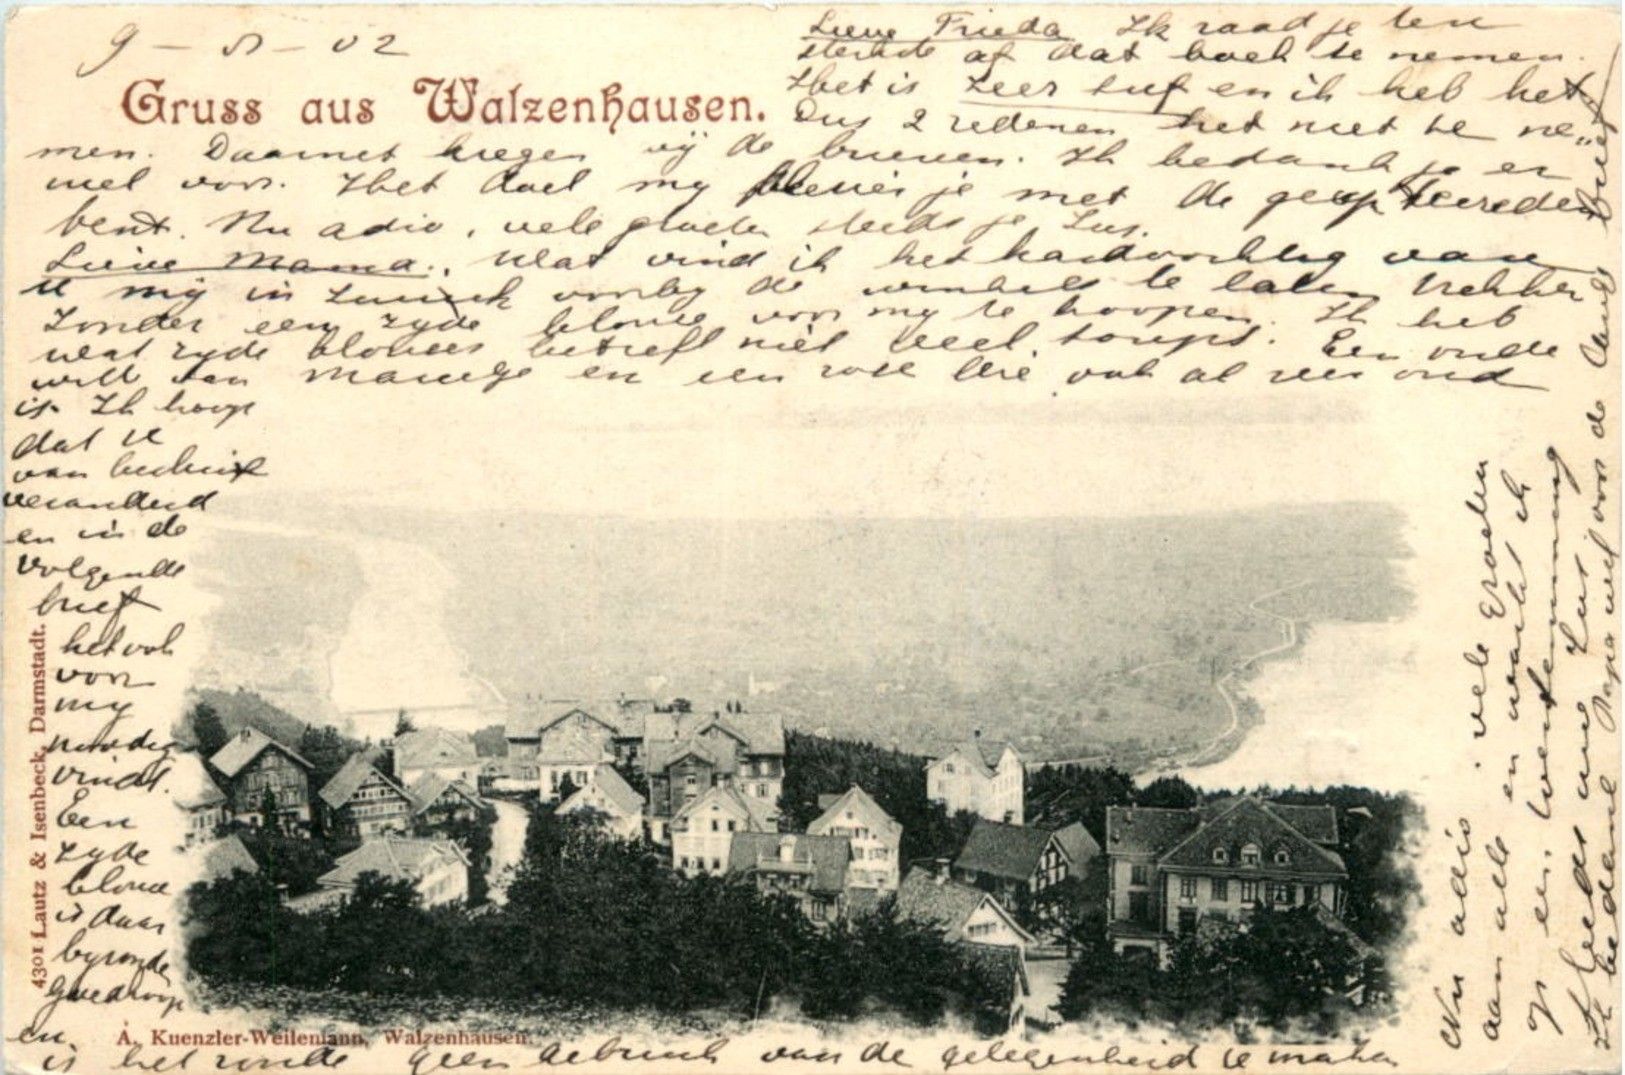 9 - 5 - 02
Gruss aus Walzenhausen.
Lieve Frieda Ik raad je ten
sterkste af dat boek te nemen.
Het is zeer suf en ik heb het
Dus 2 redenen het niet te ne„
men. Daarnet kregen wij de brieven. Ik bedank je er
wel voor. Het doet my plezier je met de
bent. Nu adio, vele groeten steeds je Zus.
Lieve Mama, Wat vind ik het van
U mij in voorby de winkels te laten trekken
Zonder een zyde blouse voor my te koopen. Ik heb
wat zyde blouses betreft niet veel soeps. Een oude
witte van Marietje en een rose die ook al zeer oud
is. Ik hoop
dat U
van besluit
veranderd
en in de
volgende
brief
het ook
voor
my
noodig
vindt.
Een
zyde
blouse
is daar
byzonder
goedkoop
en
is het zonde geen gebruik van de gelegenheid te maken
Nu adio vele groeten
aan alle en wacht ik
op een toestemming
Steeds uwe Zus
Ik bedank Papa wel voor de brief
4301 Lautz & Isenbeck, Darmstadt.
A. Kuenzler-Weilemann, Walzenhausen.